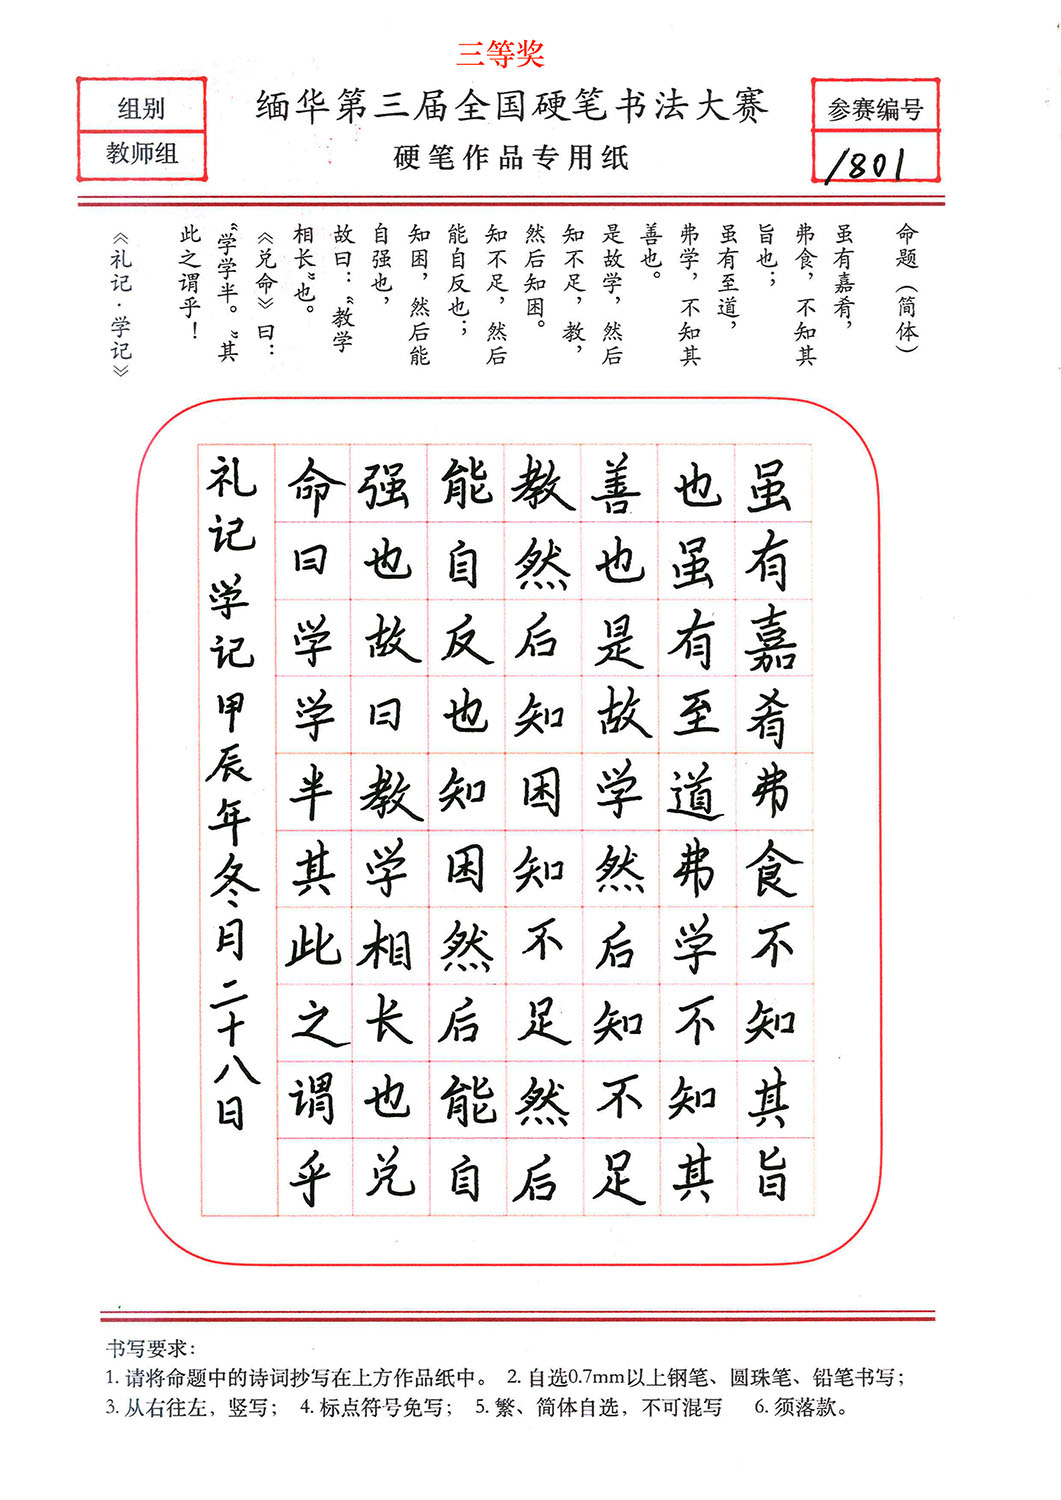 三等奖
组别
教师组
缅华第三届全国硬笔书法大赛
硬笔作品专用纸
参赛编号
1801
命题（简体）
虽有嘉肴，
弗食，不知其
旨也；
虽有至道，
弗学，不知其
善也。
是故学，然后
知不足，教，
然后知困。
知不足，然后
能自反也；
知困，然后能
自强也，
故曰：“教学
相长”也。
《兑命》曰：
“学学半。”其
此之谓乎！
《礼记·学记》
虽有嘉肴弗食不知其旨
也虽有至道弗学不知其
善也是故学然后知不足
教然后知困知不足然后
能自反也知困然后能自
强也故曰教学相长也兑
命曰学学半其此之谓乎
礼记学记甲辰年冬月二十八日
书写要求：
1. 请将命题中的诗词抄写在上方作品纸中。 2. 自选0.7mm以上钢笔、圆珠笔、铅笔书写；
3. 从右往左，竖写； 4. 标点符号免写； 5. 繁、简体自选，不可混写 6. 须落款。